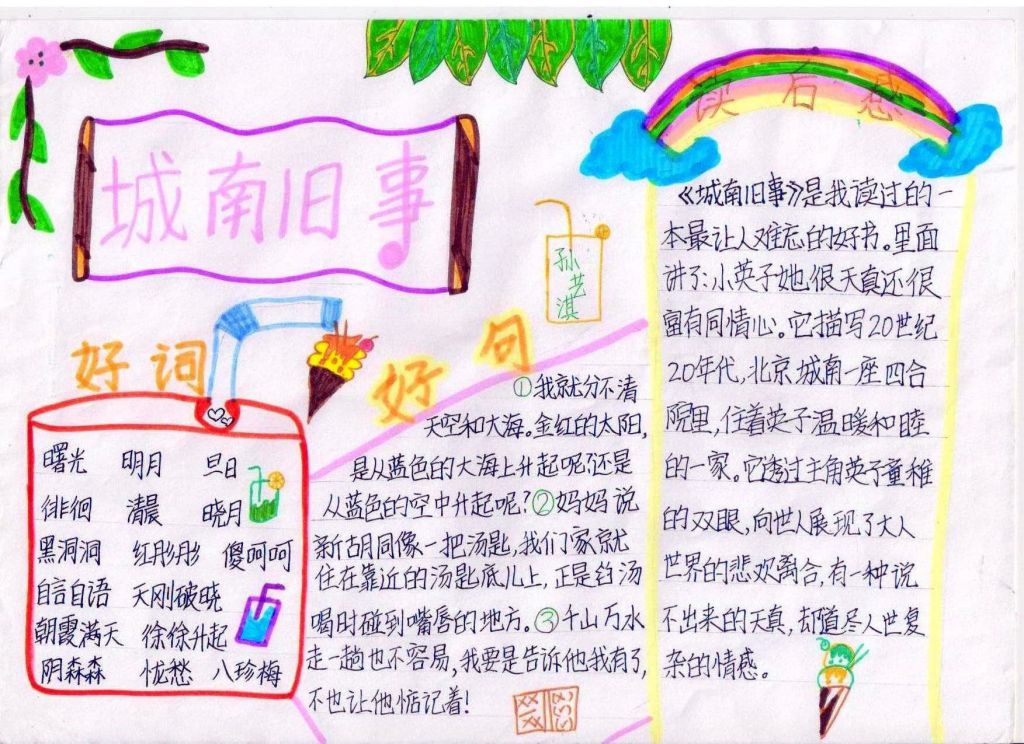 城南旧事
读后感
孙艺淇
好词
曙光 明月 旦日
徘徊 清晨 晓月
黑洞洞 红彤彤 傻呵呵
自言自语 天刚破晓
朝霞满天 徐徐升起
阴森森 忧愁 八珍梅
好句
①我就分不清
天空和大海。金红的太阳,
是从蓝色的大海上升起呢?还是
从蓝色的空中升起呢?②妈妈说
新胡同像一把汤匙,我们家就
住在靠近的汤匙底儿上,正是舀汤
喝时碰到嘴唇的地方。③千山万水
走一趟也不容易,我要是告诉他我有了,
不也让他惦记着!
《城南旧事》是我读过的一
本最让人难忘的好书。里面
讲了:小英子她很天真还很
富有同情心。它描写20世纪
20年代,北京城南一座四合
院里,住着英子温暖和睦
的一家。它透过主角英子童稚
的双眼,向世人展现了大人
世界的悲欢离合,有一种说
不出来的天真,却道尽人世复
杂的情感。